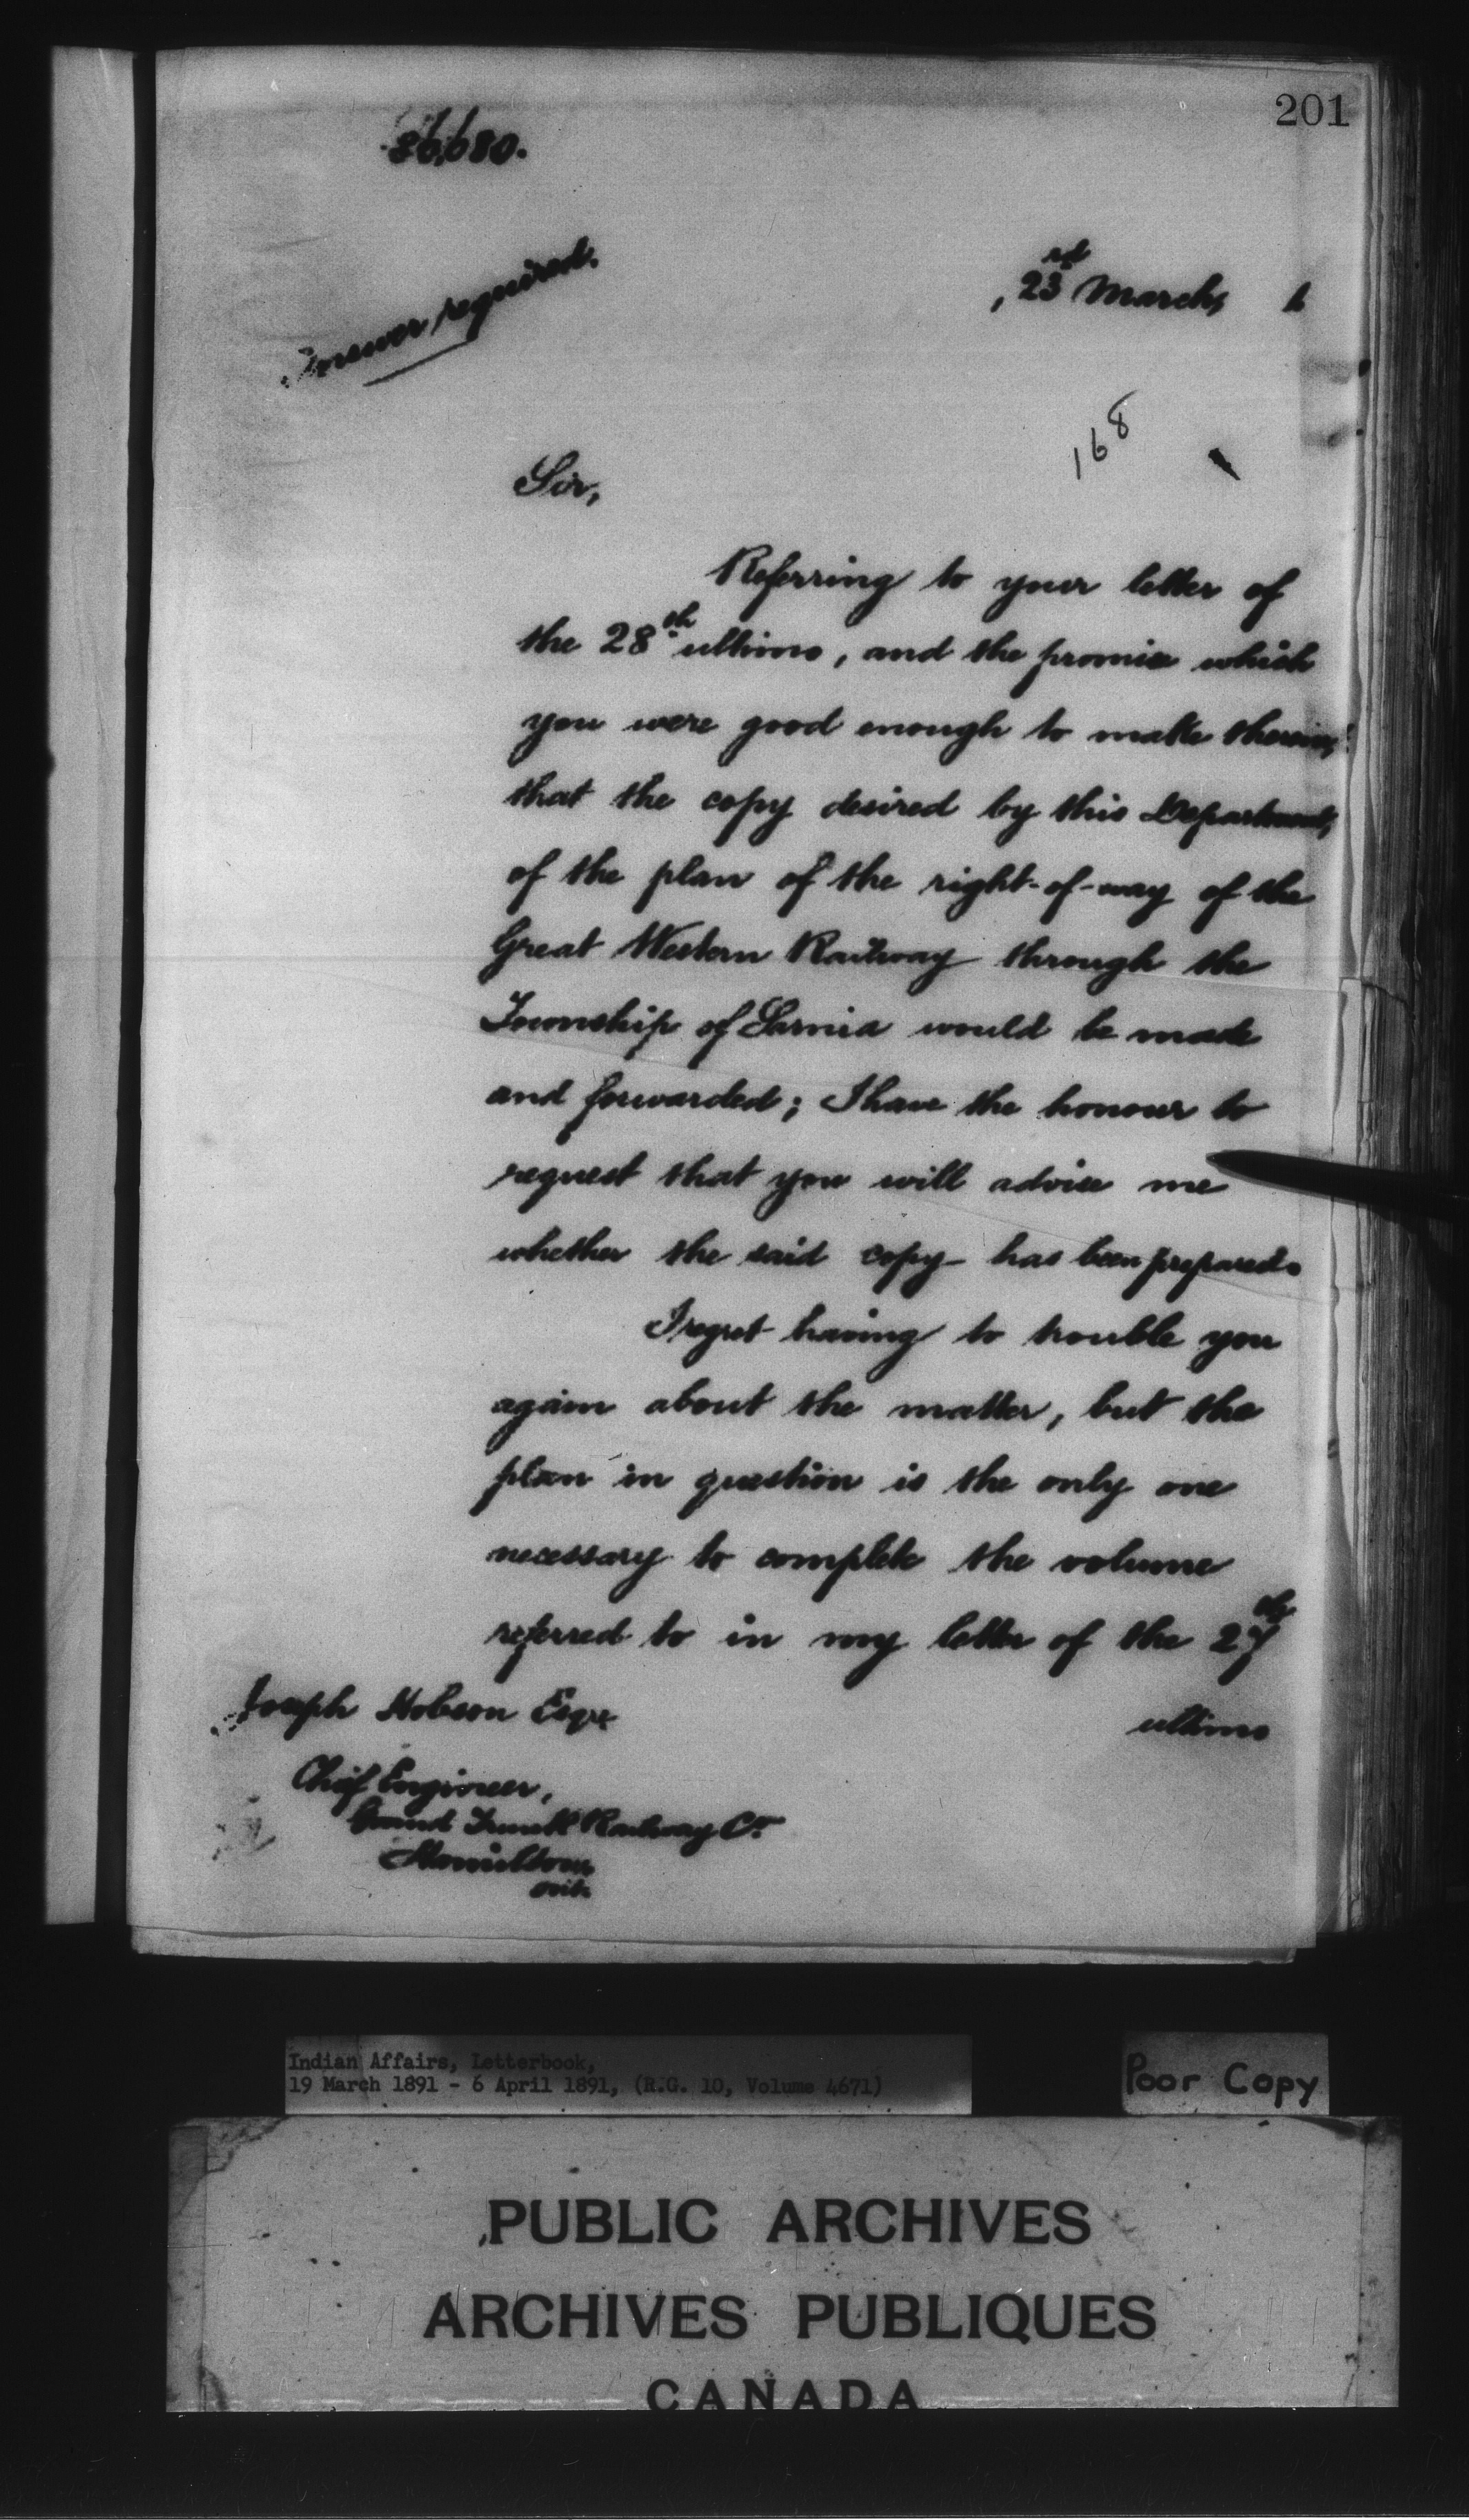 201
86,680.
Answer required.
, 23rd March, 1
168
Sir,
Referring to your letter of
the 28th ultimo, and the promise which
you were good enough to make therein,
that the copy desired by this Department,
of the plan of the right-of-way of the
Great Western Railway through the
Township of Sarnia would be made
and forwarded; I have the honour to
request that you will advise me
whether the said copy has been prepared.
I regret having to trouble you
again about the matter, but the
plan in question is the only one
necessary to complete the volume
referred to in my letter of the 27th
ultimo
Joseph Hobson Esqre
Chief Engineer,
Grand Trunk Railway Co.
Hamilton
Ont.
Indian Affairs, Letterbook,
19 March 1891 - 6 April 1891, (R.G. 10, Volume 4671)
Poor Copy
PUBLIC ARCHIVES
ARCHIVES PUBLIQUES
CANADA